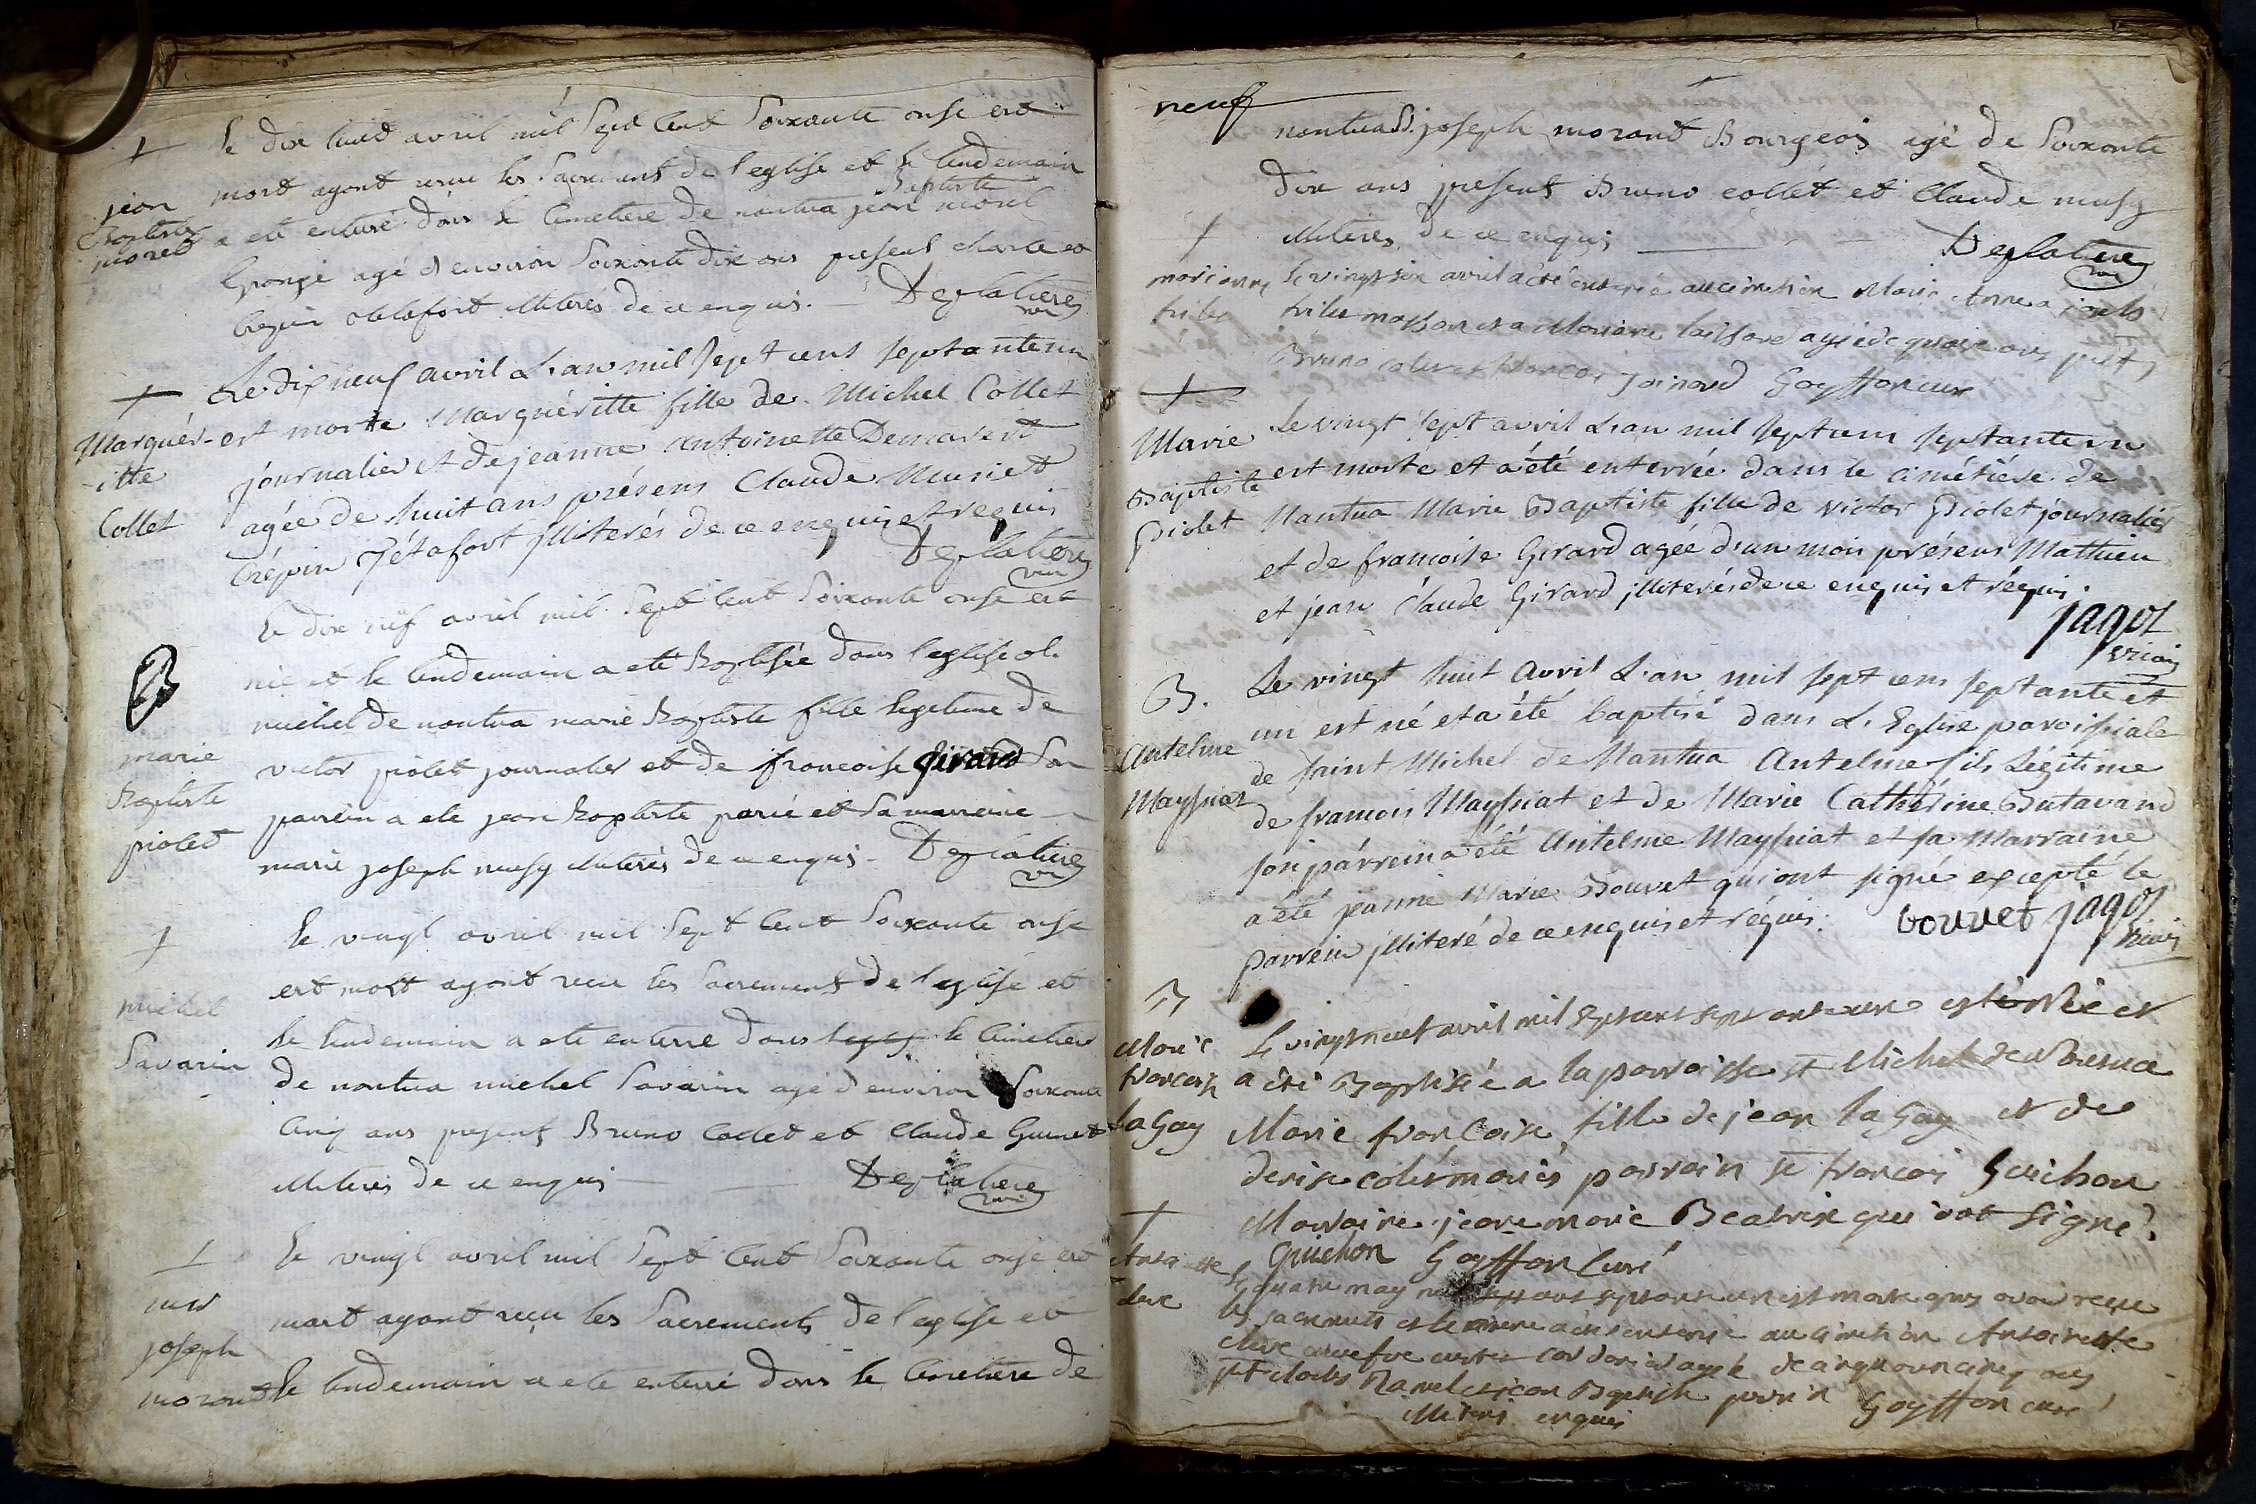 +
jean
Baptiste
morel
Le dix huit avril mil Sept Cent Soixante onse est
mort ayant recu les Sacremens de l'eglise et le lendemain
a eté enterré dans le Cimetiere de nantua jean Baptiste morel
agé d'environ Soixante dix ans present charle et
illiterés de ce enquis. — Deglatiere
vic
+
Marguér-
itte
Collet
Le dix neuf avril L'an mil sept cens septante un
est morte Marguéritte fille de Michel Collet
journalier et de jeanne Antoinette
agée de huit ans présens Claude Musi et
Crépin illiterés de ce enquis et requis
Deglatiere
vic
B
marie
Baptiste
piolet
Le dix nuf avril mil Sept Cent Soixante onse est
née et le lendemain a eté Baptisée dans l'eglise st
michel de nantua marie Baptiste fille legitime de
victor piolet journalier et de francoise girard son
parrein a eté jean Baptiste et Sa marreine
marie joseph musy illiterés de ce enquis - Deglatiere
vic
+
michel
Savarin
Le vingt avril mil Sept Cent Soixante onse
est mort ayant recu les Sacrements de l'eglise et
le lendemain a eté enterré dans le Cimetiere
de nantua michel Savarin agé d'environ Soixante
Cinq ans present Bruno Collet et Claude
illiterés de ce enquis — Deglatiere
vic
+
joseph
morand
Le vingt avril mil Sept Cent Soixante onse est
mort ayant reçu les Sacrements de l'eglise et
le lendemain a eté enterré dans le Cimetiere de
neuf
nantua Sr. joseph morand Bourgeois agé de Soixante
dix ans present Bruno collet et Claude musy
illiterés de ce enquis — Deglatiere
vic
+
marianne
Le vingt six avril a été enterrée au cimetiere Marie Anne
agée de quatre ans
Bruno colet et francois Goyffon cure
+
Marie
Baptiste
Piolet
Le vingt sept avril L'an mil sept cens septante un
est morte et a été enterrée dans le cimétiére de
Nantua Marie Baptiste fille de victor Piolet journalier
et de francoise Girard agée d'un mois présens Mathieu
et jean Claude Girard illiterés de ce enquis et réquis.
jagot
vicai
B.
Antelme
Mayssiat
Le vingt huit Avril L'an mil sept cens septante et
un est né et a été baptisé dans L'Eglise paroissiale
de saint Michel de Nantua Antelme fils Légitime
de francois Mayssiat et de Marie Cathérine Butavand
son parrein a été Antelme Mayssiat et sa Marraine
a été jeanne Marie Bouvet qui ont signé excepté le
parrein illiteré de ce enquis et réquis. bouvet jagot
vicai
B
Marie
francoise
LaGay
Le vingt neuf avril mil sept cent septante un est née et
a été Baptisée a la parroisse st Michel de Nantua
Marie francoise fille de jean la Gay et de
denise colet mariés parrain Sr francois Guichon
Marraine jeane marie Beatrix qui ont signé.
Guichon Goyffon Curé
+
Le quatre may est morte apres avoir recue
les sacrements et a été enterrée au cimetiere Antoinette
agée de cinquante cinq ans
jean Baptiste Goyffon curé
illiterés enquis